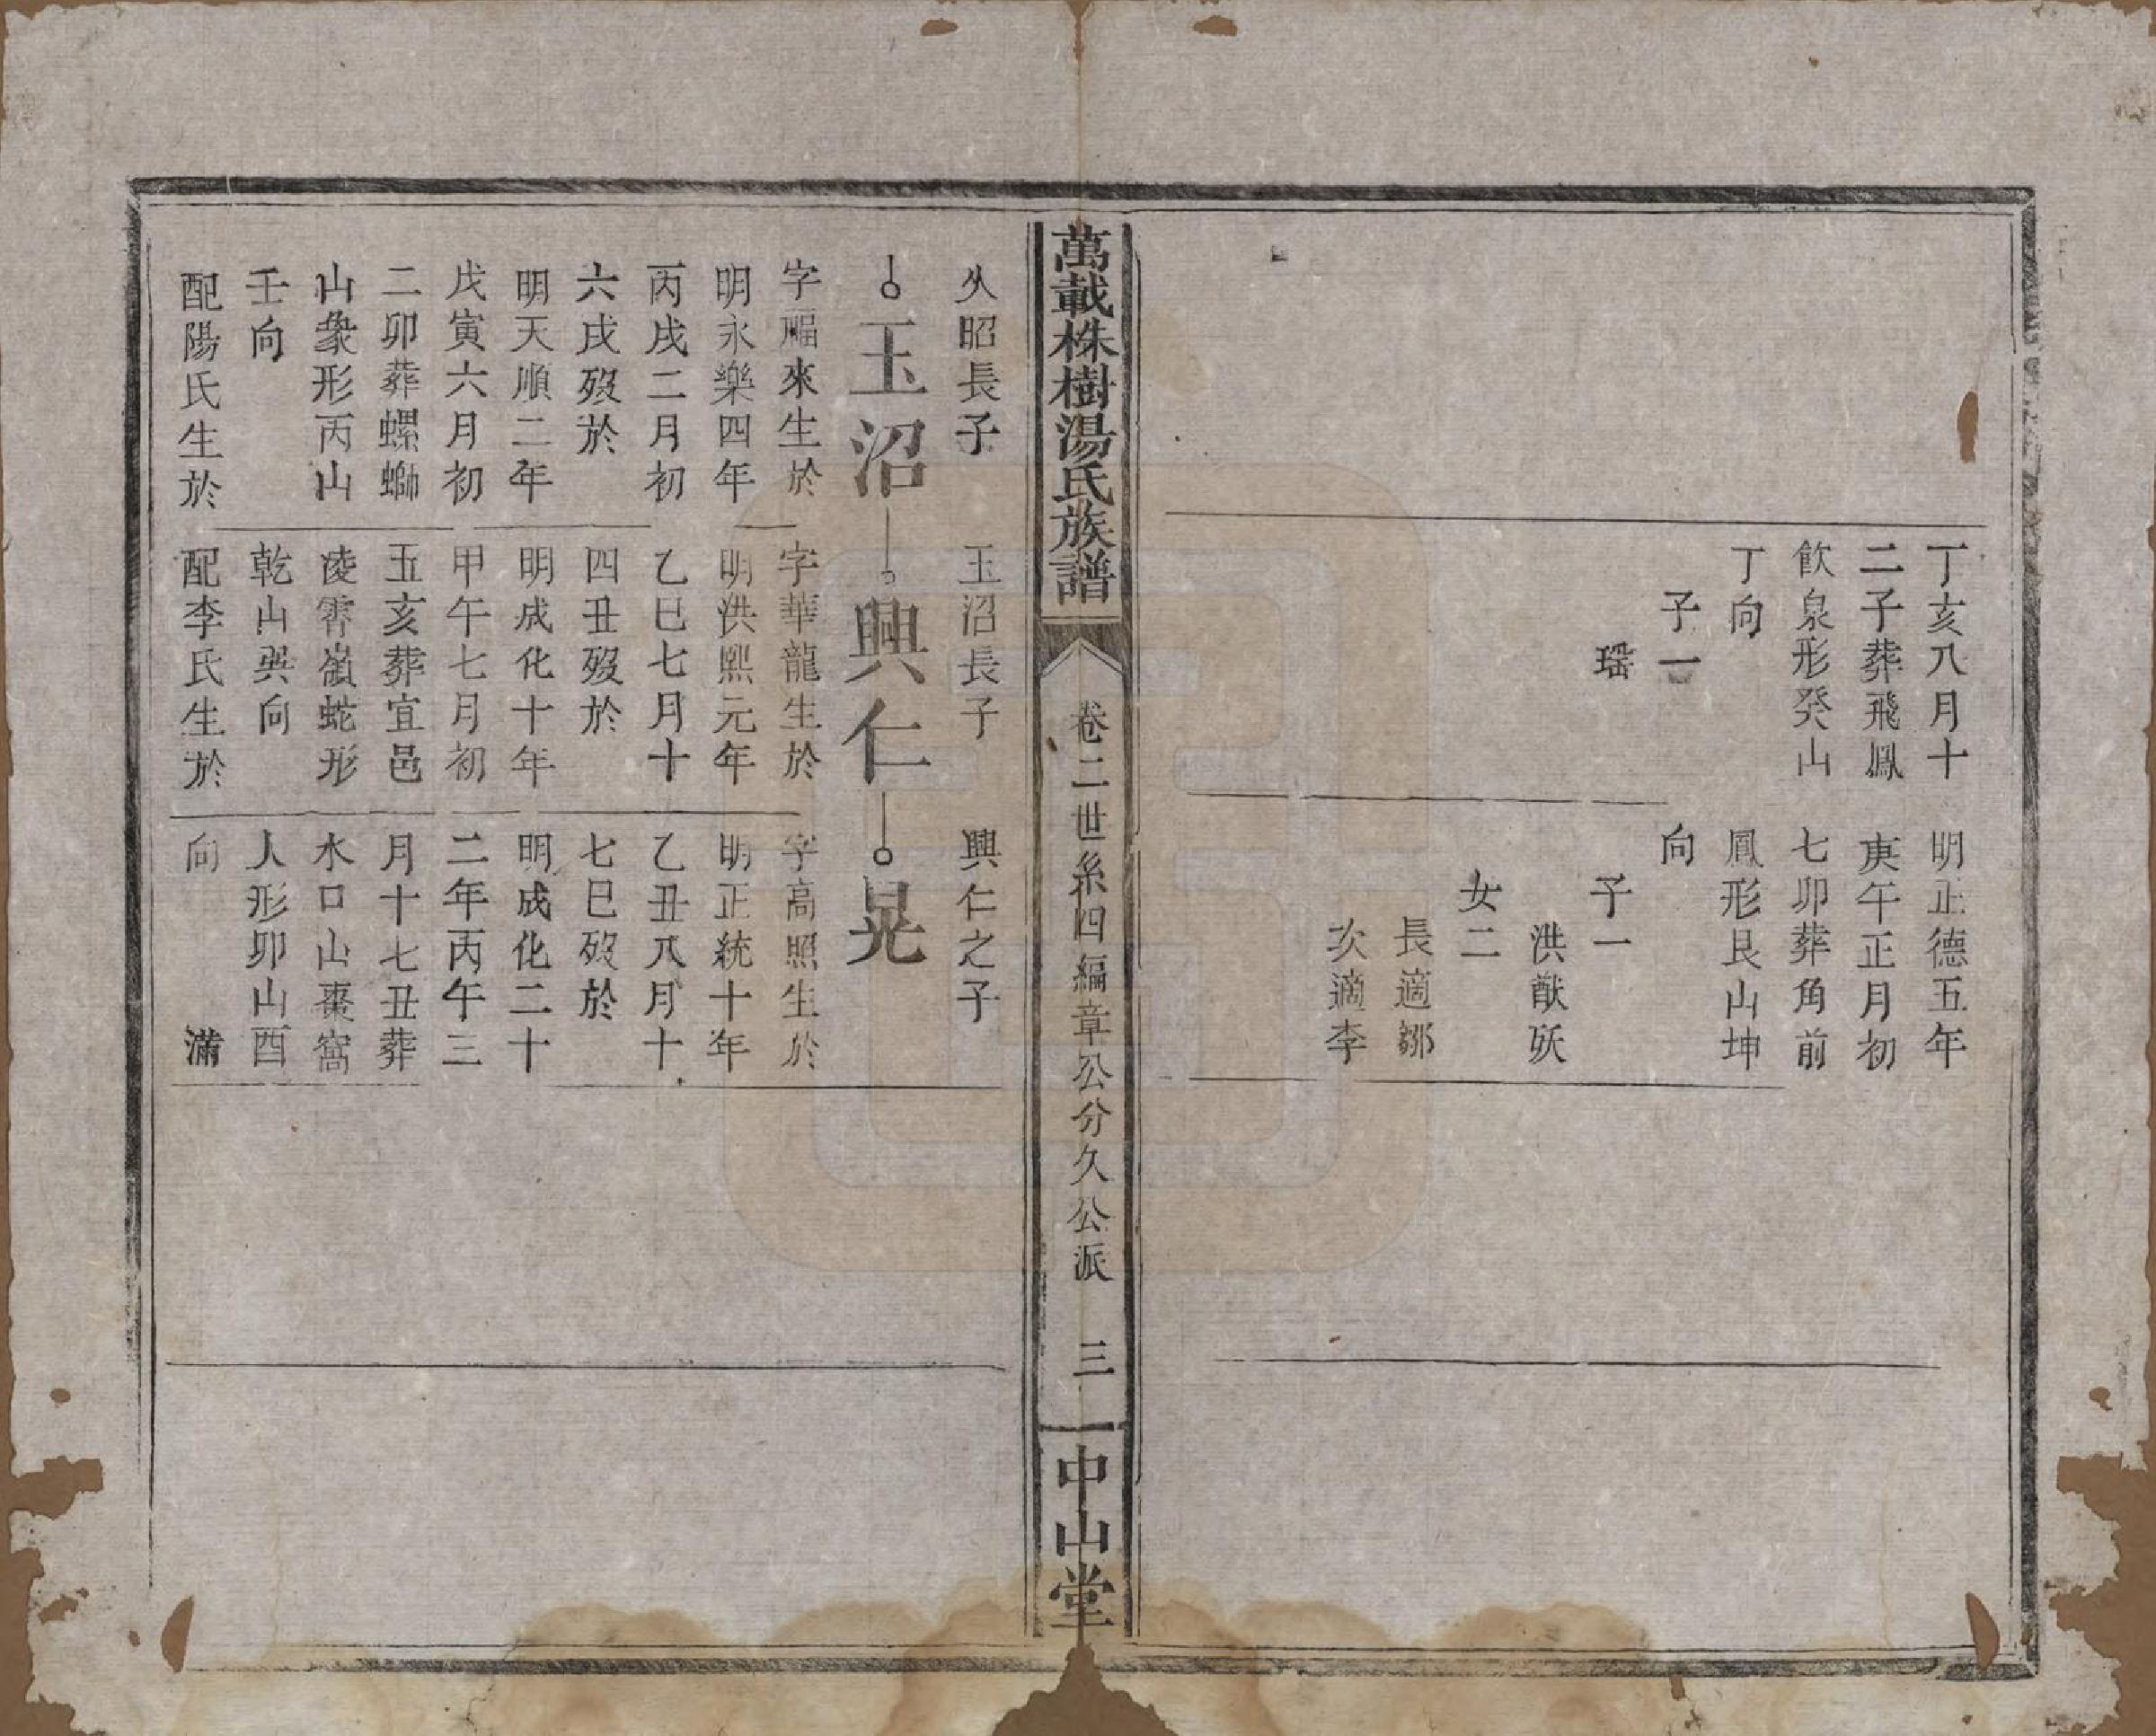 丁亥八月十
二子葬飛鳳
飲泉形癸山
丁向
子一
瑶
明正德五年
庚午正月初
七卯葬角前
鳳形艮山坤
向
子一
洪猷殀
女二
長適鄒
次適李
萬載株樹湯氏族譜
卷二世系四編章公分久公派
三
中山堂
久昭長子
玉沼
字福來生於
明永樂四年
丙戌二月初
六戌歿於
明天順二年
戊寅六月初
二卯葬螺螄
山象形丙山
壬向
配陽氏生於
玉沼長子
興仁
字華龍生於
明洪熙元年
乙巳七月十
四丑歿於
明成化十年
甲午七月初
五亥葬宜邑
凌霄嶺蛇形
乾山巽向
配李氏生於
興仁之子
晃
字高照生於
明正統十年
乙丑八月十
七巳歿於
明成化二十
二年丙午三
月十七丑葬
水口山棗窩
人形卯山酉
向
滿